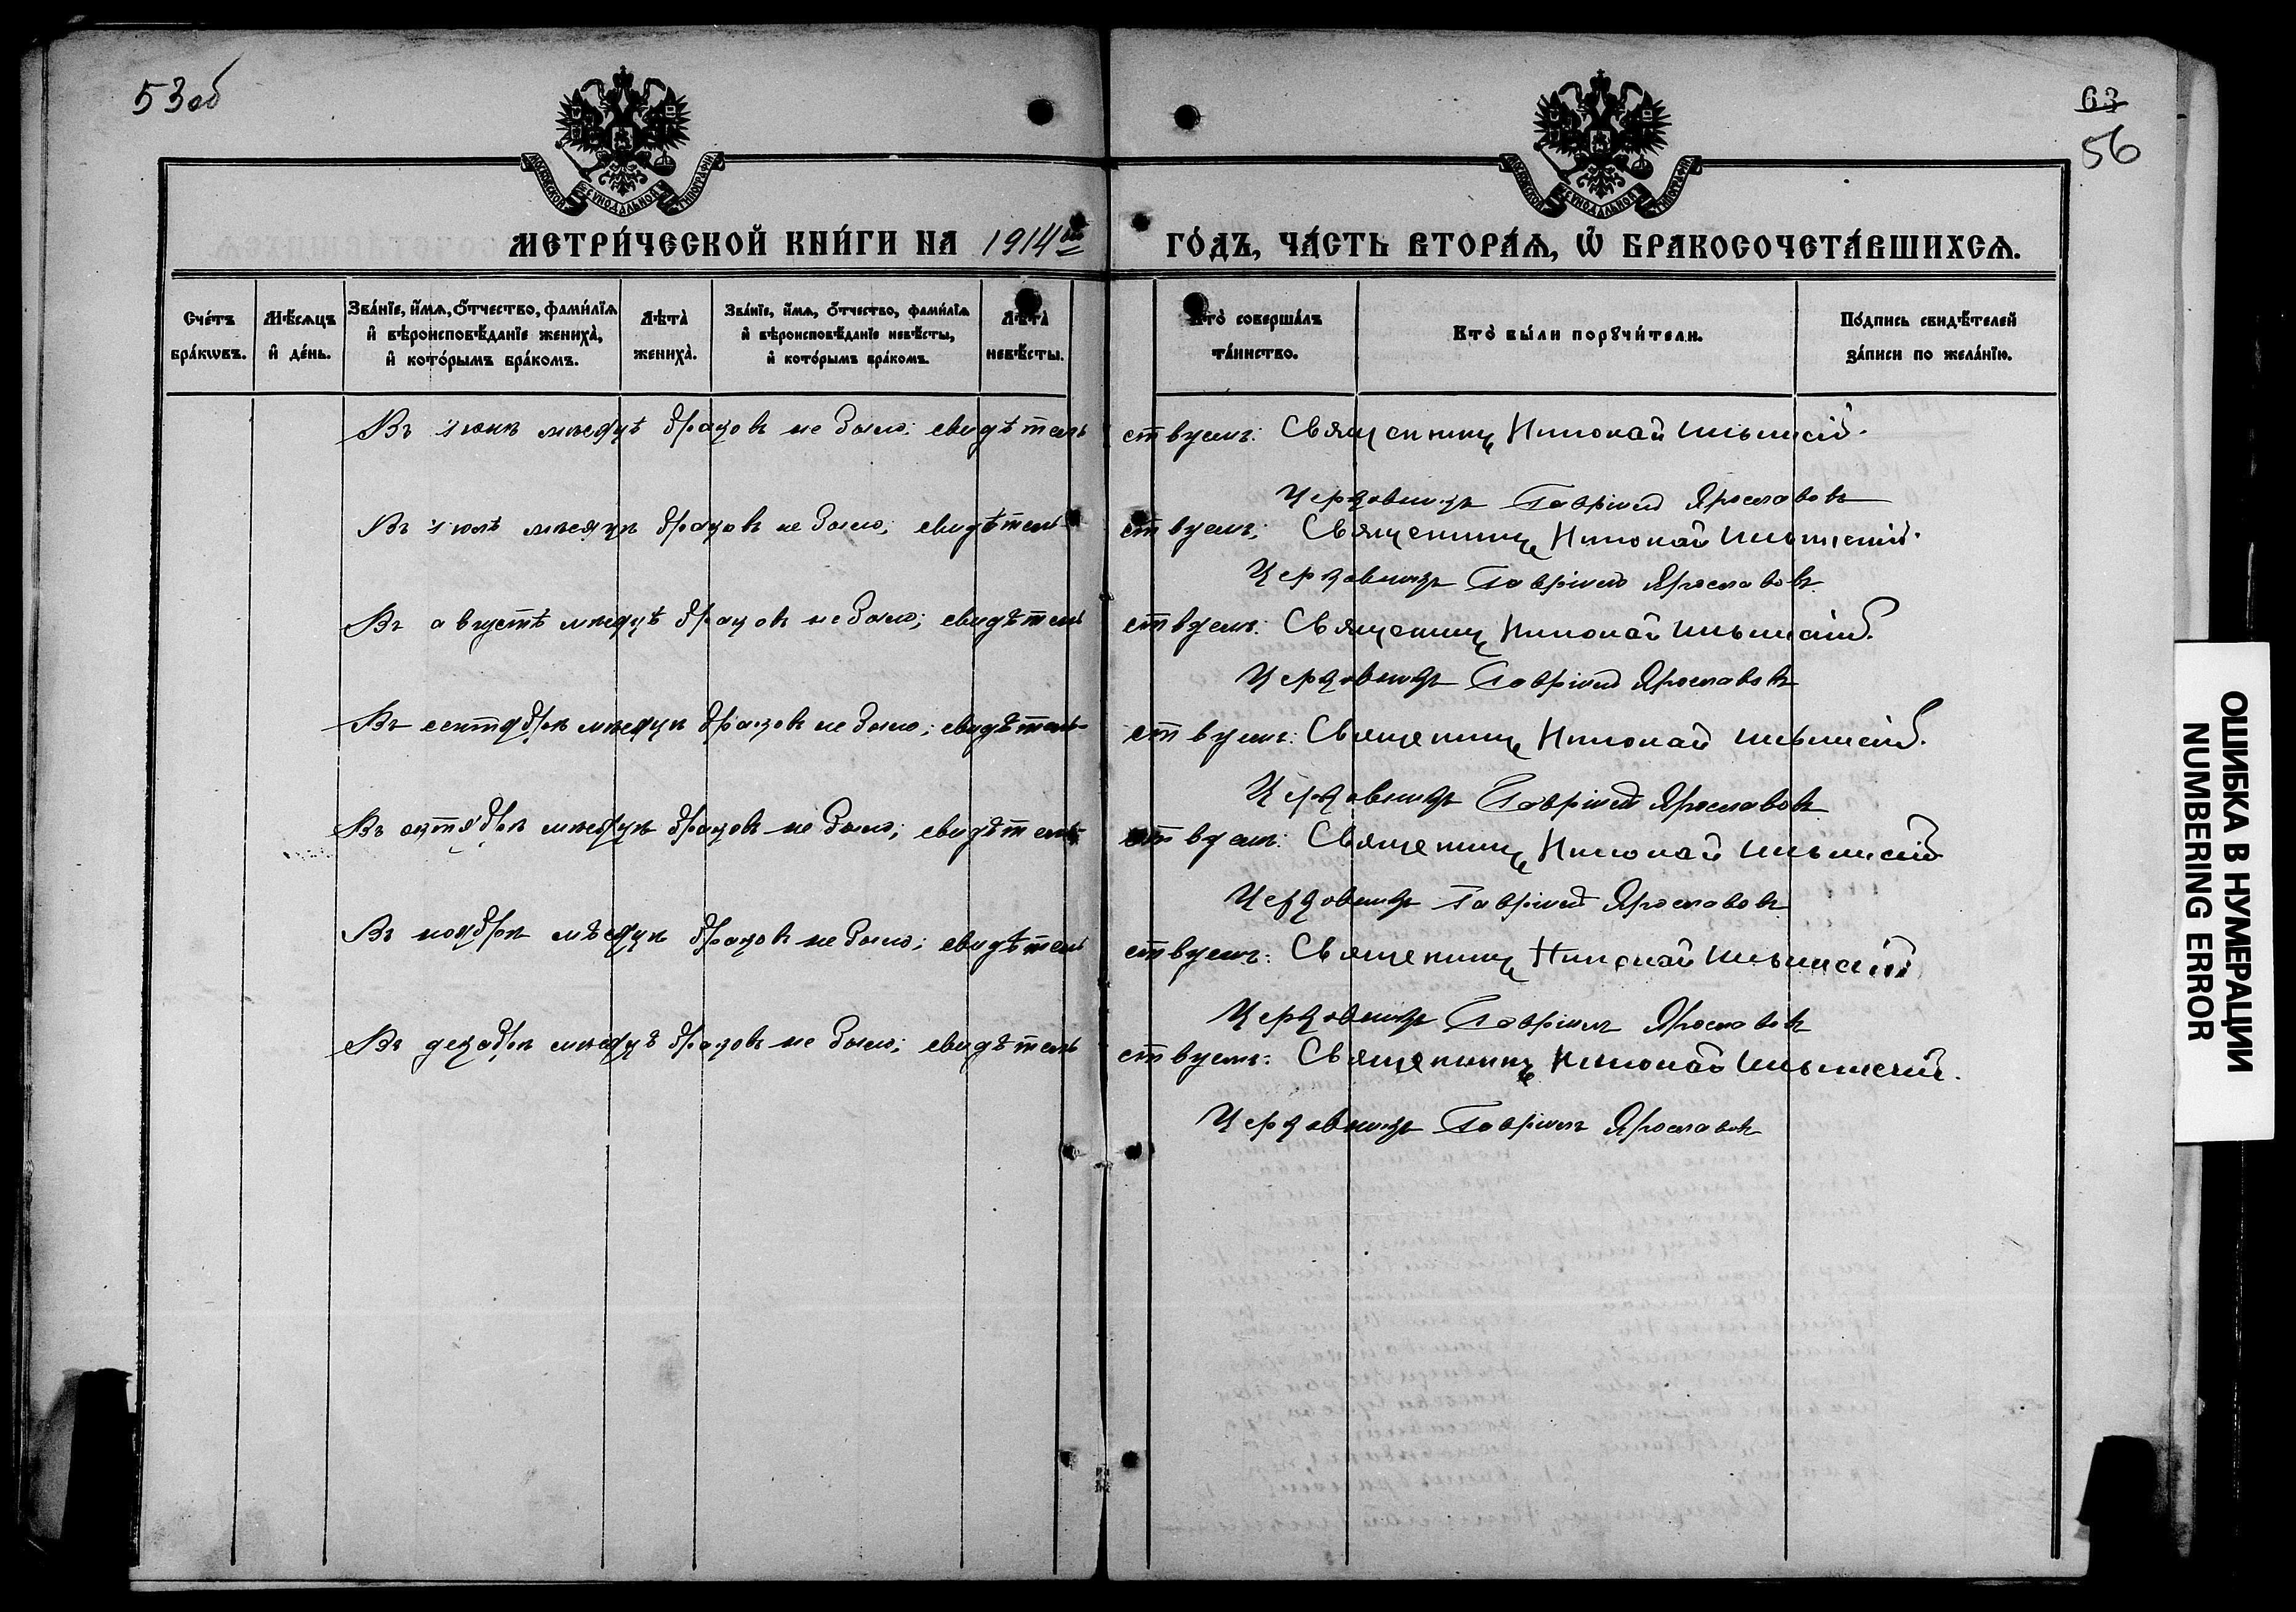 53 об
63
56
МОСКОВСКОЙ СѴНОДАЛЬНОЙ ТИПОГРАФІИ
МОСКОВСКОЙ СѴНОДАЛЬНОЙ ТИПОГРАФІИ
МЕТРИ́ЧЕСКОЙ КНИ́ГИ НА 1914ый ГО́ДЪ, ЧА́СТЬ ВТОРА́Ѧ, Ѡ҆ БРАКОСОЧЕТА́ВШИХСѦ.
Сче́тъ бра́кѡвъ.
Мѣ́сѧцъ и҆ де́нь.
Зва́нїе, и҆́мѧ, ѻ҆́тчество, фами́лїѧ и҆ вѣроисповѣ́данїе жениха̀, и҆ кото́рымъ бра́комъ.
Лѣ́та̀ жениха̀.
Зва́нїе, и҆́мѧ, ѻ҆́тчество, фами́лїѧ и҆ вѣроисповѣ́данїе невѣ́сты, и҆ кото́рымъ бра́комъ.
Лѣ́та̀ невѣ́сты.
Кто̀ соверша́лъ та́инство.
Кто̀ бы́ли порꙋчи́тели.
По́дпись свидѣ́телей за́писи по жела́нїю.
Въ іюнѣ мѣсяцѣ браковъ не было; свидѣтельствуемъ: Священникъ Николай Ильинскій.
Церковникъ Гавріилъ Ярославовъ
Въ іюлѣ мѣсяцѣ браковъ не было; свидѣтельствуемъ: Священникъ Николай Ильинскій.
Церковникъ Гавріилъ Ярославовъ.
Въ августѣ мѣсяцѣ браковъ не было; свидѣтельствуемъ: Священникъ Николай Ильинскій.
Церковникъ Гавріилъ Ярославовъ
Въ сентябрѣ мѣсяцѣ браковъ не было; свидѣтельствуемъ: Священникъ Николай Ильинскій.
Церковникъ Гавріилъ Ярославовъ
Въ октябрѣ мѣсяцѣ браковъ не было; свидѣтельствуемъ: Священникъ Николай Ильинскій
Церковникъ Гавріилъ Ярославовъ
Въ ноябрѣ мѣсяцѣ браковъ не было; свидѣтельствуемъ: Священникъ Николай Ильинскій
Церковникъ Гавріилъ Ярославовъ
Въ декабрѣ мѣсяцѣ браковъ не было; свидѣтельствуемъ: Священникъ Николай Ильинскій.
Церковникъ Гавріилъ Ярославовъ
ОШИБКА В НУМЕРАЦИИ
NUMBERING ERROR